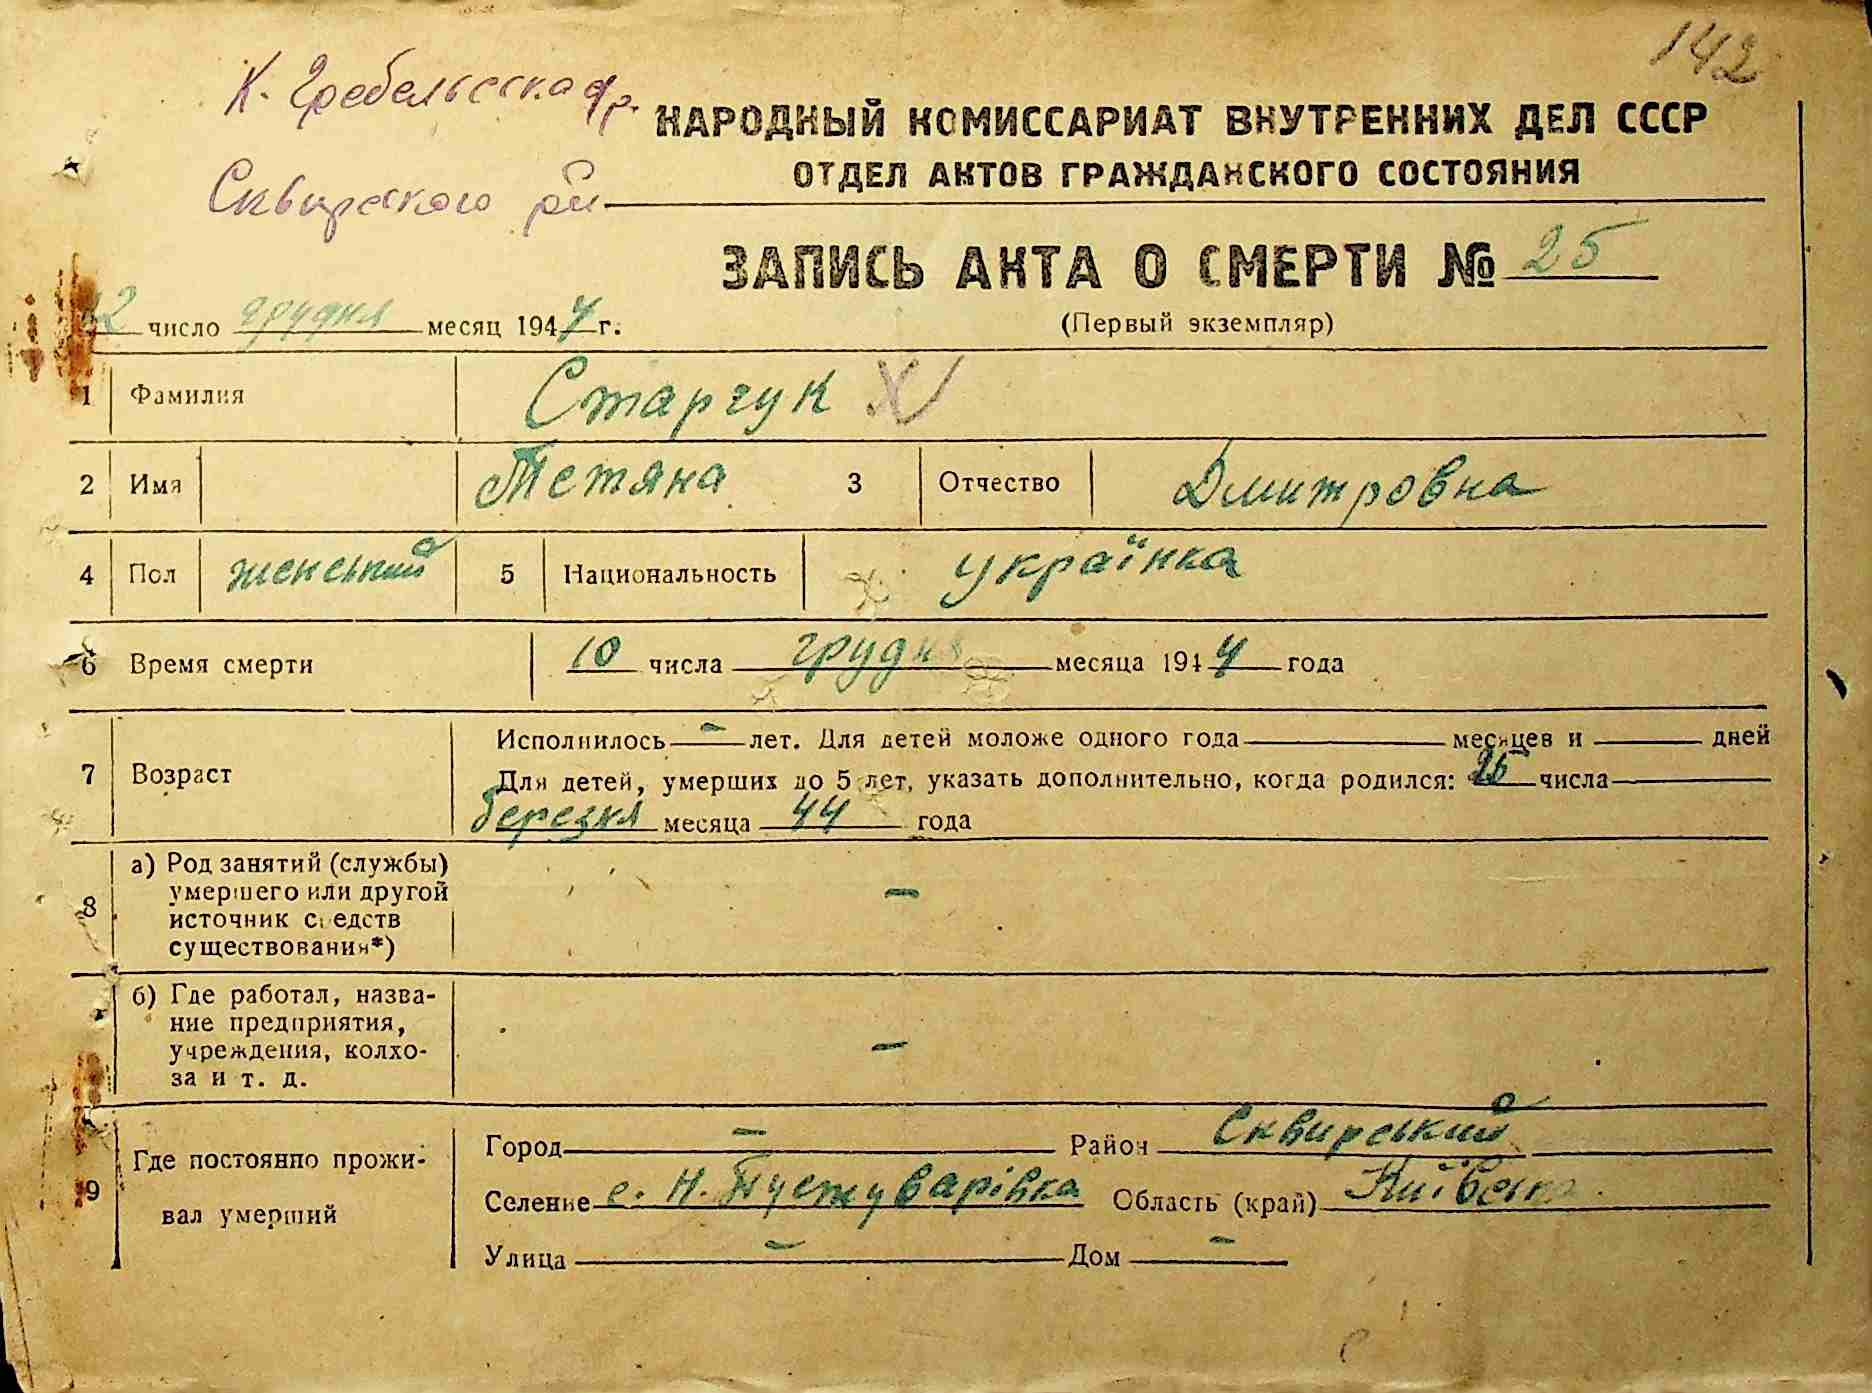 142
К. Гребельська
Сквирского рн
НАРОДНЫЙ КОМИССАРИАТ ВНУТРЕННИХ ДЕЛ СССР
ОТДЕЛ АКТОВ ГРАЖДАНСКОГО СОСТОЯНИЯ
ЗАПИСЬ АКТА О СМЕРТИ № 25
12 число грудня месяц 1944 г.
(Первый экземпляр)
1 Фамилия Старчук
2 Имя Тетяна 3 Отчество Дмитровна
4 Пол женський 5 Национальность українка
6 Время смерти 10 числа грудня месяца 1944 года
7 Возраст
Исполнилось — лет. Для детей моложе одного года месяцев и дней
Для детей, умерших до 5 лет, указать дополнительно, когда родился: 25 числа
березня месяца 44 года
8
а) Род занятий (службы)
умершего или другой
источник средств
существования*)
—
б) Где работал, назва-
ние предприятия,
учреждения, колхо-
за и т. д.
—
9
Где постоянно прожи-
вал умерший
Город — Район Сквирський
Селение с. Н. Пустуварівка Область (край) Київська
Улица — Дом —